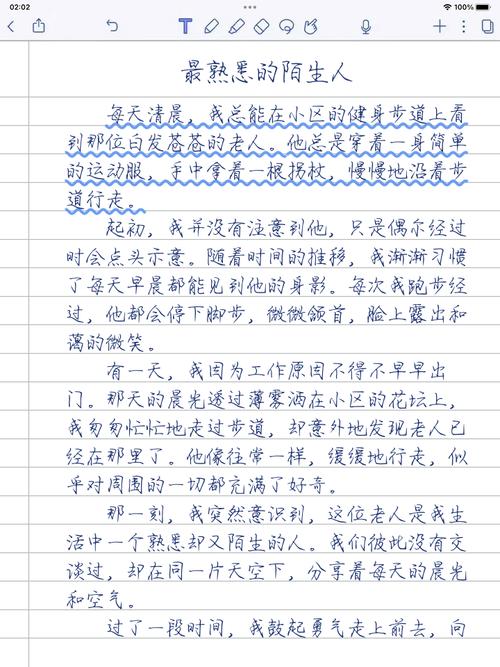 02:02
100%
最熟悉的陌生人
每天清晨，我总能在小区的健身步道上看
到那位白发苍苍的老人。他总是穿着一身简单
的运动服，手中拿着一根拐杖，慢慢地沿着步
道行走。
起初，我并没有注意到他，只是偶尔经过
时会点头示意。随着时间的推移，我渐渐习惯
了每天早晨都能见到他的身影。每次我跑步经
过，他都会停下脚步，微微颔首，脸上露出和
蔼的微笑。
有一天，我因为工作原因不得不早早出
门。那天的晨光透过薄雾洒在小区的花坛上，
我匆匆忙忙地走过步道，却意外地发现老人已
经在那里了。他像往常一样，缓缓地行走，似
乎对周围的一切都充满了好奇。
那一刻，我突然意识到，这位老人是我生
活中一个熟悉却又陌生的人。我们彼此没有交
谈过，却在同一片天空下，分享着每天的晨光
和空气。
过了一段时间，我鼓起勇气走上前去，向